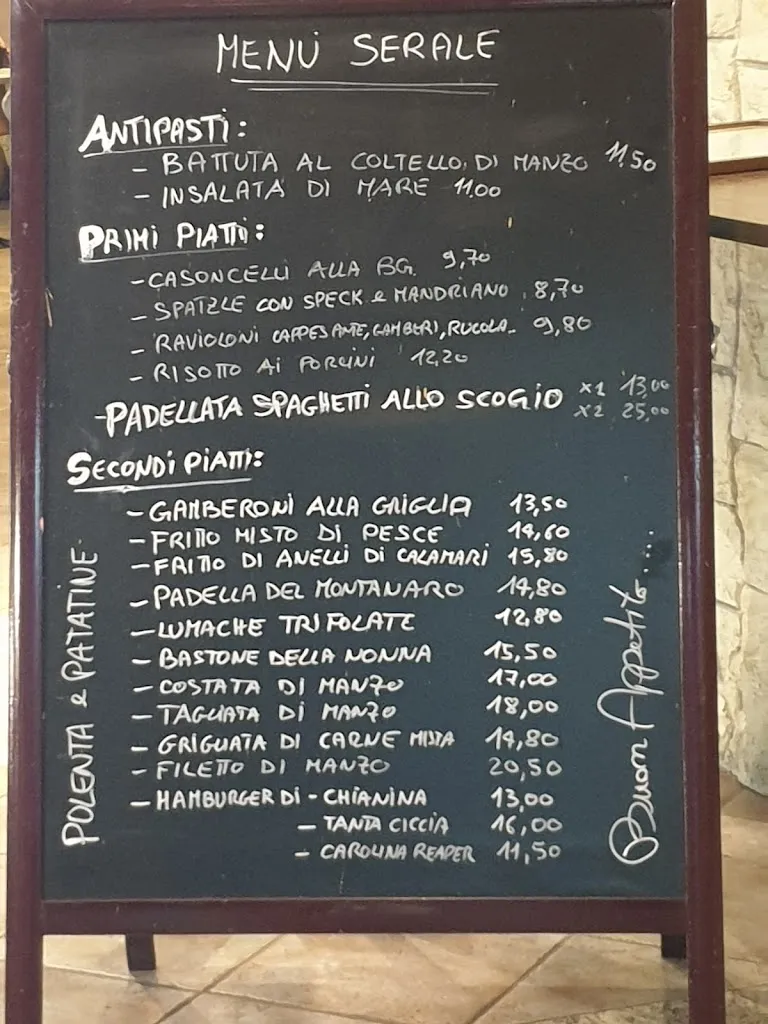 MENÚ SERALE
ANTIPASTI:
- BATTUTA AL COLTELLO DI MANZO 11.50
- INSALATA DI MARE 11.00
PRIMI PIATTI:
- CASONCELLI ALLA BG. 9,70
- SPATZLE CON SPECK e MANDRIANO 8,70
- RAVIOLONI CAPPESANTE, GAMBERI, RUCOLA.. 9,80
- RISOTTO Ai PORCINI 12,20
- PADELLATA SPAGHETTI ALLO SCOGIO x1 13,00
x2 25,00
SECONDI PIATTI:
- GAMBERONI ALLA GRIGLIA 13,50
- FRITTO MISTO DI PESCE 14,60
- FRITTO DI ANELLI Di CALAMARI 15,80
- PADELLA DEL MONTANARO 14,80
- LUMACHE TRIFOLATE 12,80
- BASTONE DELLA NONNA 15,50
- COSTATA DI MANZO 17,00
- TAGLIATA DI MANZO 18,00
- GRIGLIATA DI CARNE MISTA 14,80
- FILETTO DI MANZO 20,50
- HAMBURGER Di - CHIANINA 13,00
- TANTA CICCIA 16,00
- CAROLINA REAPER 11,50
POLENTA e PATATINE
Buon Appetito....